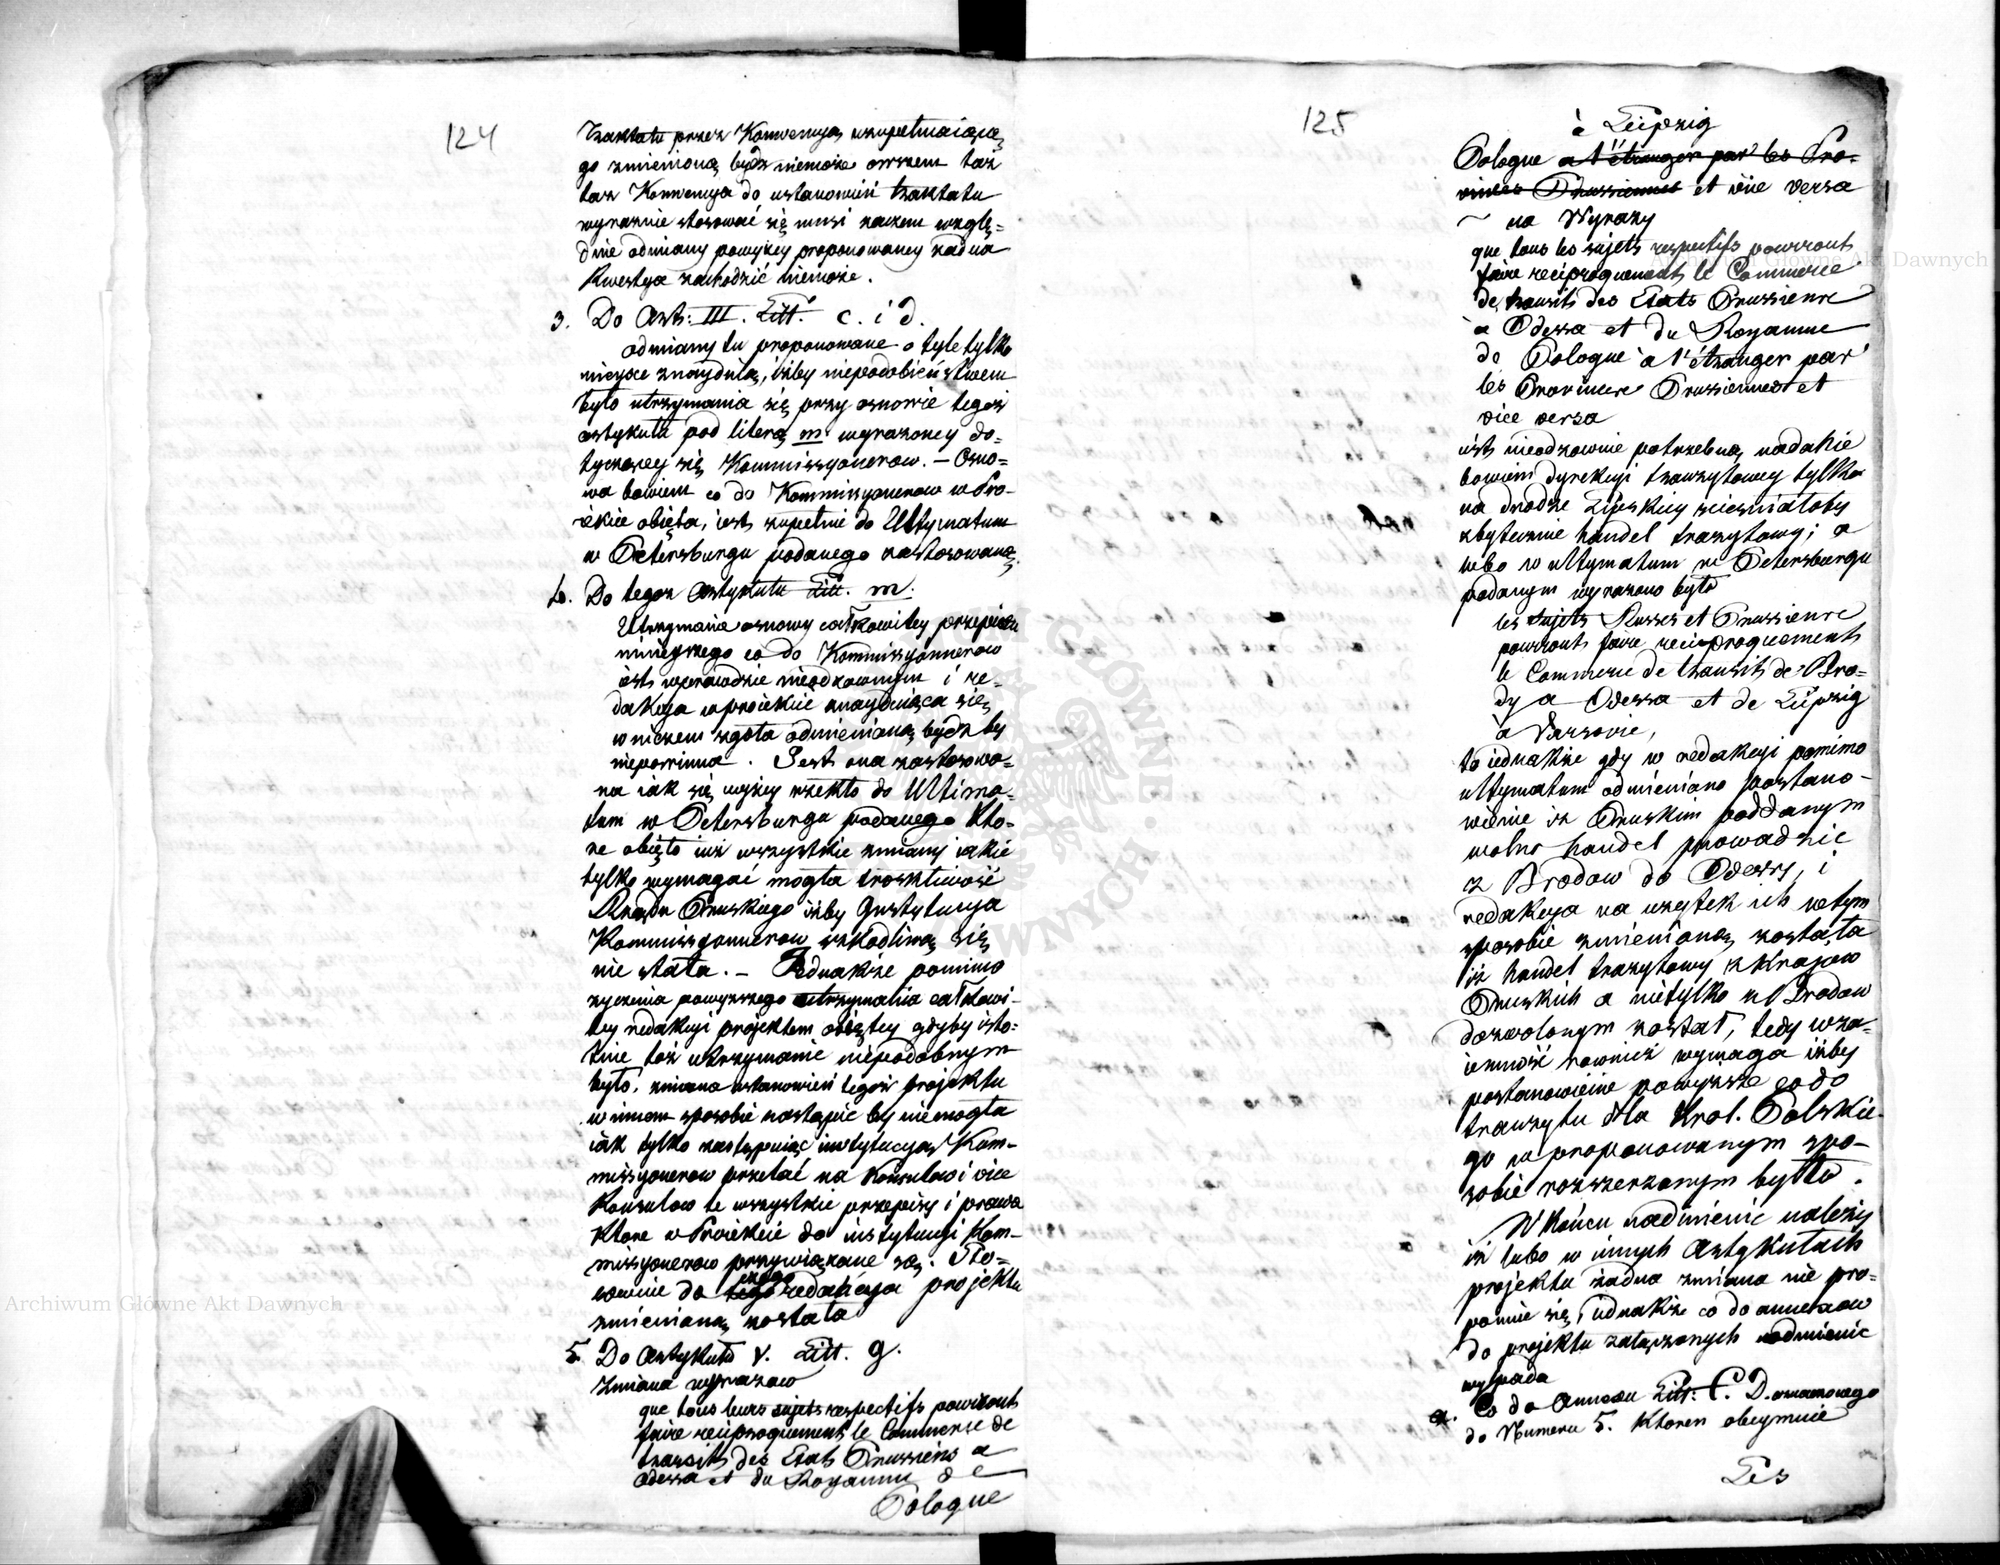 124
Traktatu przez Konwencyą uzupełniaiącą
go zmienioną bydź niemoże owszem taż
taż Konwencya do ustanowień traktatu
wyraznie stosować się musi zaczem wzglę=
dnie odmiany powyżey proponowaney żadna
kwestya zachodzić niemoże.
3. Do Art: III. Litt. c. i d.
odmiany tu proponowane o tyle tylko
mieysce znayduią, iżby niepodobieństwem
było utrzymania się przy osnowie tegoż
artykułu pod literą m wyrażoney do=
tyczącey się Kommissyonerow. – Osno=
wa bowiem co do Kommissyonerow w Pro-
iekcie obięta, iest zupełnie do Ultymatum
w Petersburgu podanego zastosowaną.
4. Do tegoż Artykułu Litt. m.
Utrzymanie osnowy całkowitey przepisu
ninieyszego co do Kommissyonerow
iest wprawdzie nieodzownym i re-
dakcya w proiekcie znayduiąca się
w niczem zgoła odmienioną bydź by
niepowinna. Jest ona zastosowa=
na iak się wyżey rzekło do Ultima-
tum w Petersburgu podanego kto-
re obięło iuż wszystkie zmiany iakie
tylko wymagać mogła troskliwość
Rządu Pruskiego iżby Instytucya
Kommissyonerow szkodliwą się
nie stała. – Jednakże pomimo
życzenia powyższego utrzymania całkowi-
tey redakcyi projektem obiętey gdyby isto-
tnie toż utrzymanie niepodobnym
było, zmiana ustanowień tegoż projektu
w innem sposobie nastąpić by niemogła
iak tylko zastępuiąc instytucyą Kom-
missyonerow przelać na Konsulow i vice
Konsulow te wszystkie przepisy i prawa
które w Proiekcie do instytucyi Kom-
missyonerow przywiązane są. Sto=
sownie do czego
tego redakcya projektu
zmienioną została
5. Do Artykułu V. Litt. g.
Zmiana wyrazow
que tous leurs sujets respectifs pourront
faire reciproquement le Commerce de
transit des Etats Prussiens a
Odessa et du Royaume de
Pologne
125
à Leipzig
Pologne a l'étranger par les Pro-
vinces Prussiennes et vice versa
na Wyrazy
que tous les sujets respectifs pourront
faire reciproquement le Commerce
de transit des Etats Prussiens
a Odessa et du Royaume
de Pologne à l'étranger par
les Provinces Prussiennes et
vice versa
iest nieodzownie potrzebną nadanie
bowiem dyrekcyi tranzytowey tylko
na drodze Lipskiey scieśniałoby
zbytecznie handel tranzytowy; a
lubo w ultymatum w Petersburgu
podanym wyrażono było
les sujets Russes et Prussiens
pourront faire reciproquement
le Commerce de transit de Bro=
dy a Odessa et de Leipzig
à Varsovie,
to iednakże gdy w redakcyi pomimo
ultymatum odmieniono postano-
wienie iż Pruskim poddanym
wolno handel prowadzić
z Brodow do Odessy, i
redakcya na użytek ich w tym
sposobie zmienioną została
iż handel tranzytowy z Krajow
Pruskich a nietylko z Brodow
dozwolonym został, tedy wza=
iemność rownież wymaga iżby
postanowienie powyższe co do
tranzytu dla Krol. Polskie-
go w proponowanym spo-
sobie rozszerzonym było.
W końcu nadmienić należy
iż lubo w innych Artykułach
projektu żadna zmiana nie pro=
ponuie się, iednakże co do annexow
do projektu załączonych nadmienić
wypada
a. Co do Annexu Litt: C. D. oznaczonego
do Numeru 5. ktoren obeymuie
Les
Archiwum Główne Akt Dawnych
Archiwum Główne Akt Dawnych